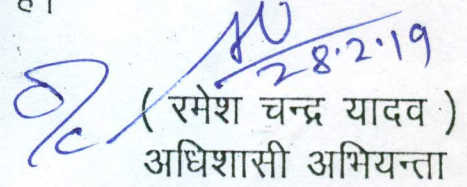 है।
28.2.19
( रमेश चन्द्र यादव )
अधिशासी अभियन्ता